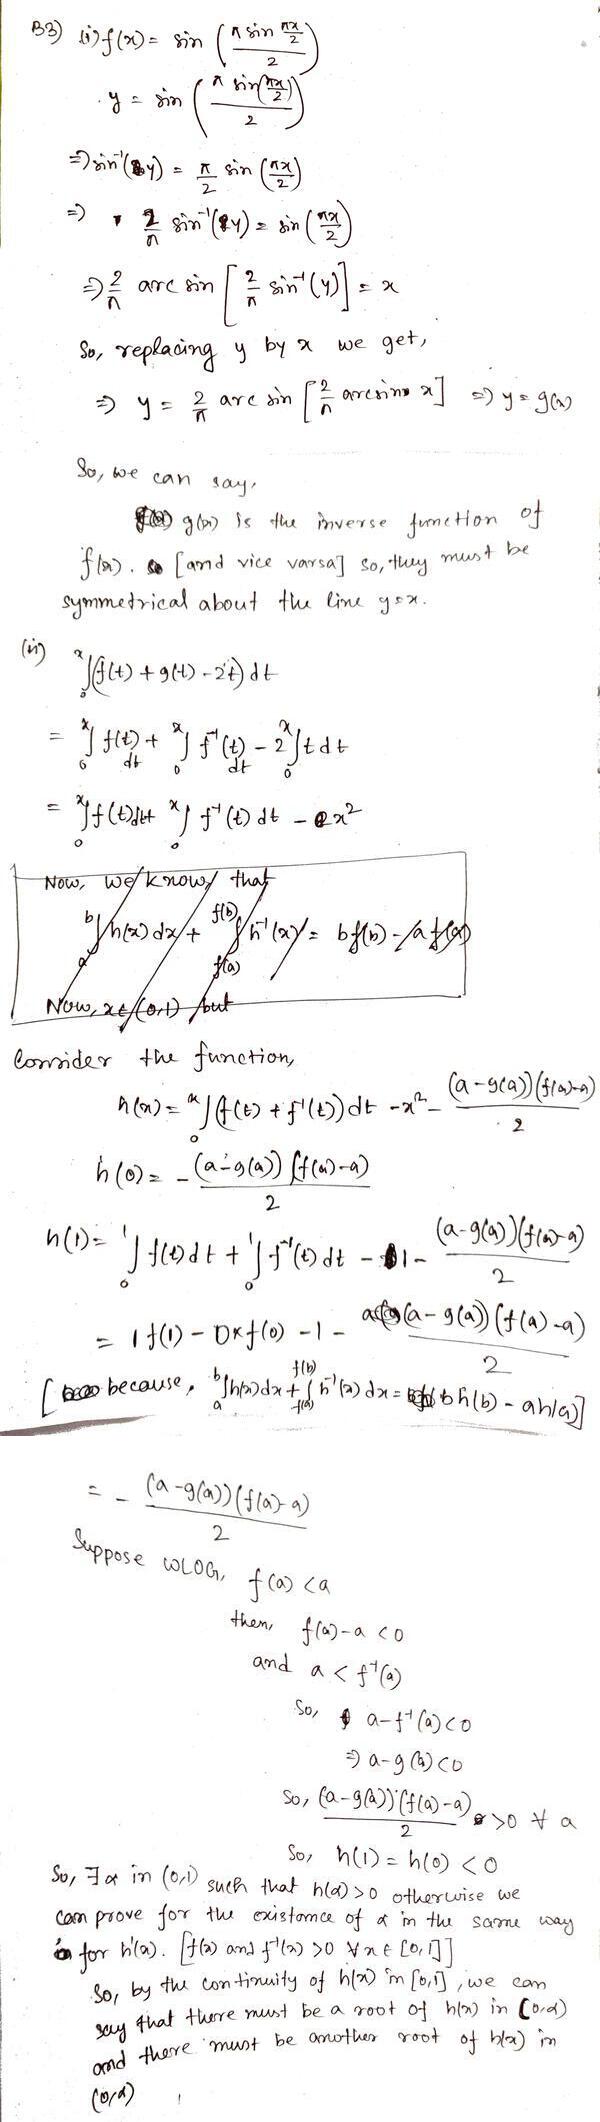 B3) (i) f(x) = sin (π sin πx/2 / 2)
y = sin (π sin(πx/2) / 2)
⇒ sin⁻¹(y) = π/2 sin (πx/2)
⇒ 2/π sin⁻¹(y) = sin (πx/2)
⇒ 2/π arc sin [2/π sin⁻¹(y)] = x
So, replacing y by x we get,
⇒ y = 2/π arc sin [2/π arcsin x] ⇒ y = g(x)
So, we can say,
g(x) is the inverse function of
f(x). [and vice varsa] so, they must be
symmetrical about the line y=x.
(ii) ₀∫ˣ (f(t) + g(t) - 2t) dt
= ₀∫ˣ f(t) dt + ₀∫ˣ f⁻¹(t) dt - 2 ₀∫ˣ t dt
= ₀∫ˣ f(t) dt + ₀∫ˣ f⁻¹(t) dt - x²
Now, we know, that
ₐ∫ᵇ h(x) dx + ∫_{f(a)}^{f(b)} h⁻¹(x) = b f(b) - a f(a)
Now, x ∈ (0,1) but
Consider the function,
h(x) = ₀∫ˣ (f(t) + f⁻¹(t)) dt - x² - (a - g(a))(f(a) - a) / 2
h(0) = - (a - g(a)) (f(a) - a) / 2
h(1) = ₀∫¹ f(t) dt + ₀∫¹ f⁻¹(t) dt - 1 - (a - g(a))(f(a) - a) / 2
= 1 f(1) - 0 × f(0) - 1 - (a - g(a)) (f(a) - a) / 2
[because, ₐ∫ᵇ h(x) dx + ∫_{f(a)}^{f(b)} h⁻¹(x) dx = b h(b) - a h(a)]
= - (a - g(a)) (f(a) - a) / 2
Suppose WLOG, f(a) < a
then, f(a) - a < 0
and a < f⁻¹(a)
So, a - f⁻¹(a) < 0
⇒ a - g(a) < 0
So, (a - g(a)) (f(a) - a) / 2 > 0 ∀ a
So, h(1) = h(0) < 0
So, ∃ α in (0,1) such that h(α) > 0 otherwise we
can prove for the existance of α in the same way
for h'(x). [f(x) and f⁻¹(x) > 0 ∀ x ∈ [0,1]]
So, by the continuity of h(x) in [0,1], we can
say that there must be a root of h(x) in (0,α)
and there must be another root of h(x) in
(0,α)